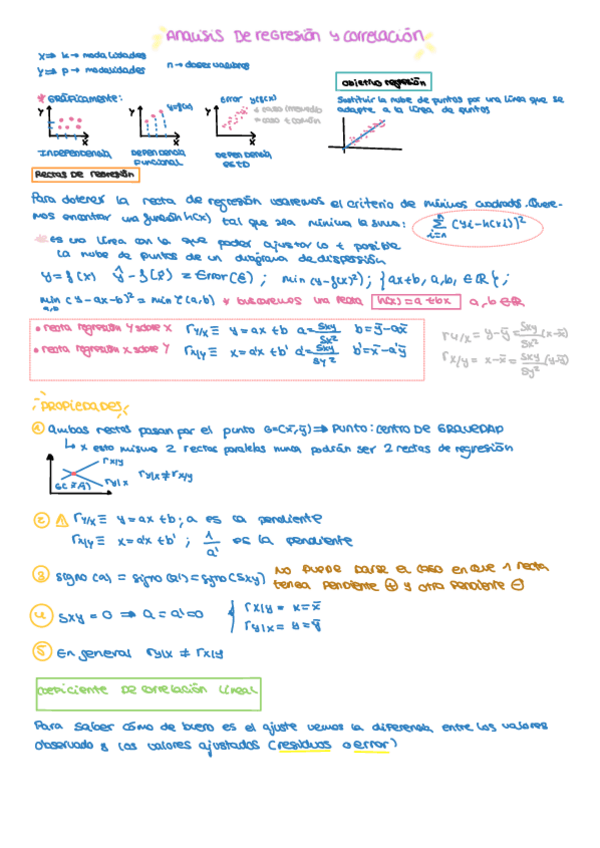 Analisis De regresión y correlación
x ⇒ k → modalidades
y ⇒ p → modalidades n → datos valores
objetivo regresión
* Gráficamente:
Sustituir la nube de puntos por una línea que se
adapte a la línea de puntos
Y X Independencia
Y y=f(x) X Dependencia funcional
Error y≅f(x) Y X Dependencia
= caso + común
Rectas De regresión
la recta de regresión usaremos el criterio de mínimos cuadrados. Quere-
mos encontrar una función h(x) tal que sea mínima la suma: Σ (yi - h(xi))²
es una línea con la que poder ajustar lo + posible
la nube de puntos de un diagrama de dispersión
y = f(x) ŷ - f(x) = Error(e); min (y-f(x)²); {ax+b, a,b, ∈ ℝ};
min a,b (y-ax-b)² = min Ψ(a,b) * buscaremos una recta h(x) = a+bx a,b ∈ ℝ
• recta regresión Y sobre X r y/x ≡ y = ax+b a = Sxy/Sx² b = ȳ-ax̄
• recta regresión X sobre Y r x/y ≡ x = a'x+b' a' = Sxy/Sy² b' = x̄-a'ȳ
r y/x = y-ȳ = Sxy/Sx² (x-x̄)
r x/y = x-x̄ = Sxy/Sy² (y-ȳ)
PROPIEDADES
① Ambas rectas pasan por el punto G=(x̄,ȳ) ⇒ Punto: centro DE GRAVEDAD
↳ x esto mismo 2 rectas paralelas nunca podrán ser 2 rectas de regresión
r x/y
G(x̄,ȳ) r y/x r y/x ≠ r x/y
② ⚠ r y/x ≡ y = ax+b; a es la pendiente
r x/y ≡ x = a'x+b'; 1/a' es la pendiente
③ signo(a) = signo(a') = signo(Sxy) NO puede darse el caso en que 1 recta
tenga pendiente ⊕ y otra pendiente ⊖
④ Sxy = 0 ⇒ a = a' = 0 { r x/y = x = x̄
r y/x = y = ȳ
⑤ En general r y/x ≠ r x/y
coeficiente De correlación lineal
Para saber cómo de bueno es el ajuste vemos la diferencia, entre los valores
observado y los valores ajustados (residuos o error)